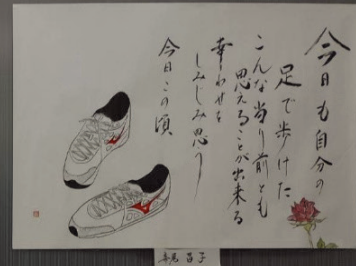 今日も自分の
足で歩けた
こんな当り前とも
思えることが出来る
幸わせを
しみじみ思う
今日この頃
昌子